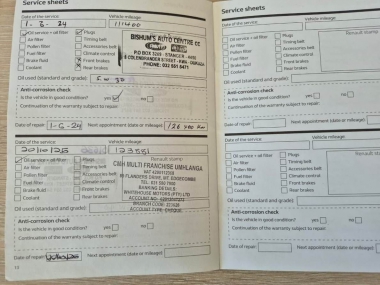 Service sheets
Service sheets
Date of the service: Vehicle mileage:
1.6.24 111400
Oil service + oil filter Plugs
Air filter Timing belt
Pollen filter Accessories belt
Fuel filter Climate control
Brake fluid Front brakes
Coolant Rear brakes
BISHUM'S AUTO CENTRE cc
P.O BOX 3269 - STANGER - 4450
PHONE: 032 551 5471
Oil used (standard/grade): 5w30
Anti-corrosion check
Is the vehicle in good condition? yes no
Continuation of the warranty subject to repair:
Date of repair: 1-6-24 Next appointment (date or mileage):
Date of the service: Vehicle mileage:
123551
Oil service + oil filter Plugs
Air filter Timing belt
Pollen filter Accessories belt
Fuel filter Climate control
Brake fluid Front brakes
Coolant Rear brakes
Renault stamp
CMH MULTI FRANCHISE UMHLANGA
BANKING DETAILS:
WHITEHOUSE MOTORS (PTY) LTD
Oil used (standard/grade):
Anti-corrosion check
Is the vehicle in good condition? yes no
Continuation of the warranty subject to repair:
Date of repair: Next appointment (date or mileage):
Date of the service: Vehicle mileage:
Oil service + oil filter Plugs
Air filter Timing belt
Pollen filter Accessories belt
Fuel filter Climate control
Brake fluid Front brakes
Coolant Rear brakes
Oil used (standard/grade):
Anti-corrosion check
Is the vehicle in good condition? yes no
Continuation of the warranty subject to repair:
Date of repair: Next appointment (date or mileage):
Date of the service: Vehicle mileage:
Oil service + oil filter Plugs
Air filter Timing belt
Pollen filter Accessories belt
Fuel filter Climate control
Brake fluid Front brakes
Coolant Rear brakes
Oil used (standard/grade):
Anti-corrosion check
Is the vehicle in good condition? yes no
Continuation of the warranty subject to repair:
Date of repair: Next appointment (date or mileage):